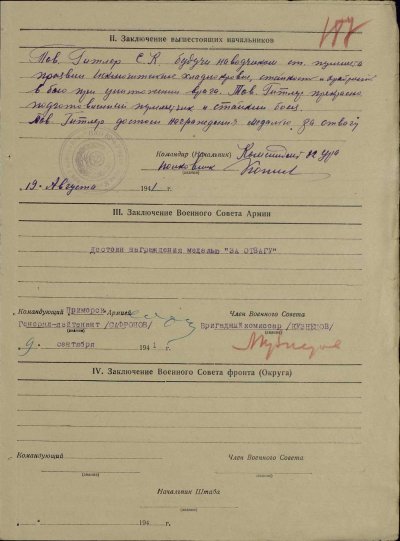 177
II. Заключение вышестоящих начальников
Тов. Гитлер С.К. будучи наводчиком ст. пулемета
проявил исключительное хладнокровие, стойкость и
в бою при уничтожении врага. Тов. Гитлер прекрасно
подготовленный пулеметчик и стойкий боец.
Тов. Гитлер достоин награждения медалью „за отвагу“
Командир (Начальник) Комендант УРа
полковник
(звание)
19 " Августа 1941 г.
III. Заключение Военного Совета Армии
достоин награждения медалью "ЗА ОТВАГУ"
Командующий Приморск. Армией Член Военного Совета
Генерал-лейтенант /САФРОНОВ/ Бригадный комиссар /КУЗНЕЦОВ/
(звание) (звание)
9 " сентября 1941 г. Кузнецов
IV. Заключение Военного Совета фронта (Округа)
Командующий Член Военного Совета
(звание) (звание)
Начальник Штаба
(звание)
" " 194 г.